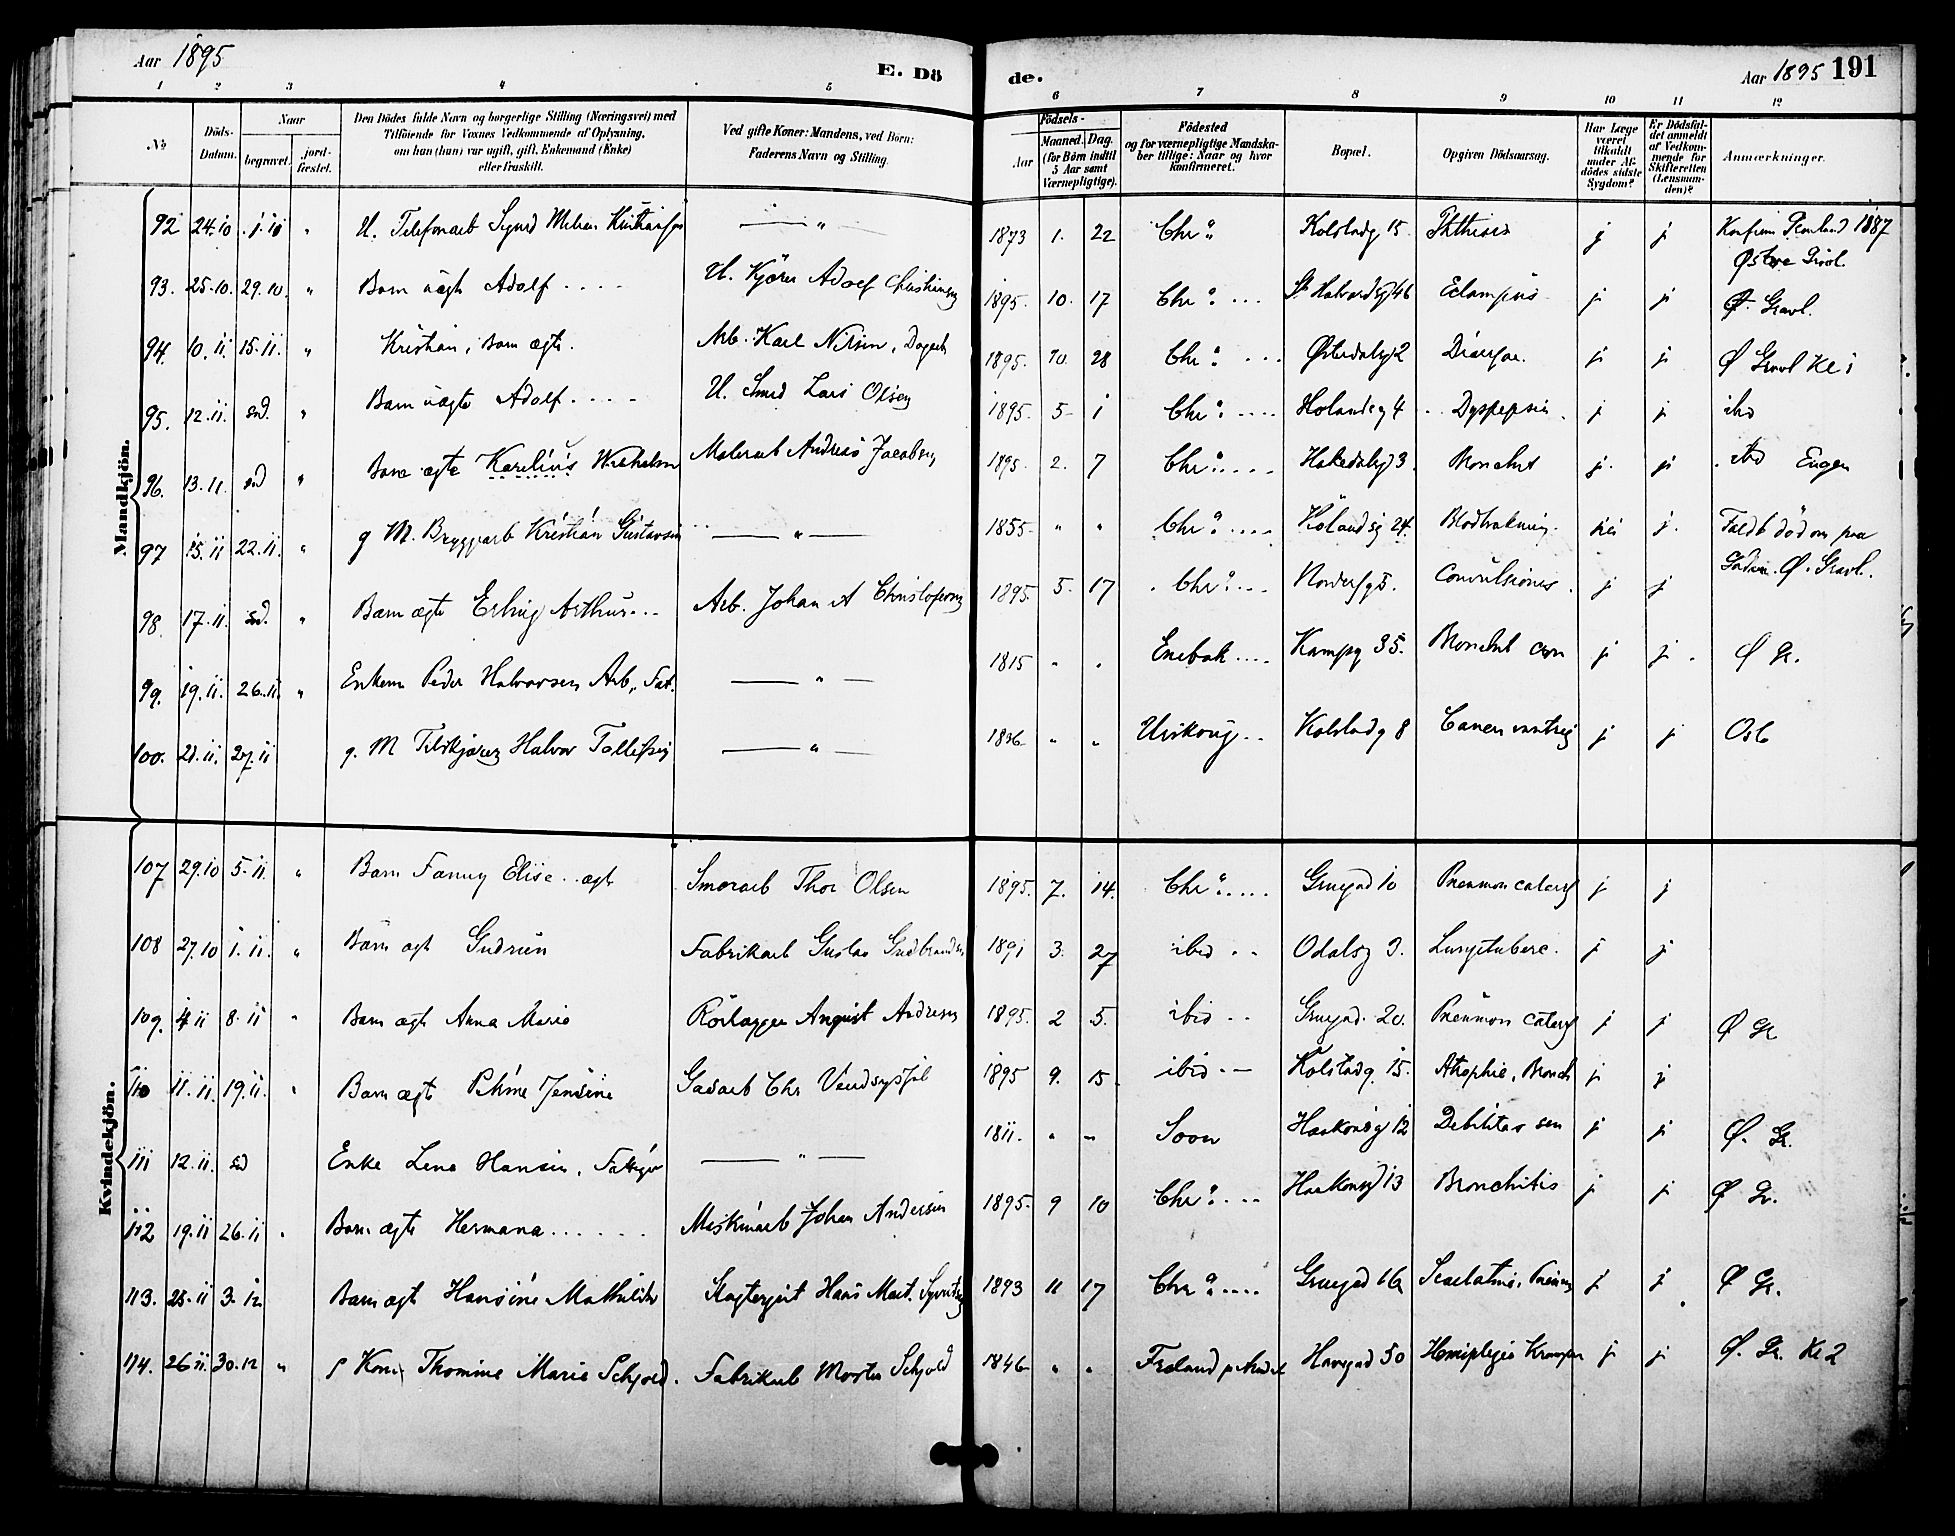 Aar 1895 E. Dö de. Aar 1895 191
1 2 3 4 5 6 7 8 9 10 11 12
No Döds-Datum. Naar begravet. jord-fæstet. Den Dödes fulde Navn og borgerlige Stilling (Næringsvei) med Tilföiende for Voxnes Vedkommende af Oplysning, om han (hun) var ugift, gift, Enkemand (Enke) eller fraskilt. Ved gifte Koner: Mandens, ved Börn: Faderens Navn og Stilling. Födsels- Aar Maaned. Dag. (for Börn indtil 5 Aar samt Værnepligtige). Födested og for værnepligtige Mandskaber tillige: Naar og hvor konfirmeret. Bopæl. Opgiven Dödsaarsag. Har Læge været tilkaldt under Afdödes sidste Sygdom? Er Dödsfaldet anmeldt af Vedkommende for Skifteretten (Lensmanden)? Anmærkninger.
Mandkjön.
92 24.10 1.11 " U. Telefonarb Sigurd — " — 1873 1. 22 Chr.a Kolstadg 15. Phthisis j j 1887
Østre Gravl.
93. 25.10. 29.10. " Barn uægte Adolf .... U. Kjører Adolf Christiansen 1895. 10. 17 Chr.a ... St Halvardsg 46 Eclampsis j j Ø. Gravl.
94. 10.11. 15.11. " Kristian, Barn ægte. Arb. Karl Nilsen, 1895. 10. 28 Chr.a ... Østerdalsg 2 Diarrhoe. j j Ø Gravl Kl 1
95. 12.11. sd. " Barn uægte Adolf .... U. Smed Lars Olsen 1895. 5 1 Chr.a .... Holandsg 4 Dyspepsia. j j ibd
96. 13.11. sd " Barn ægte Karelius Wilhelm Malerarb Andreas Jacobsen 1895. 2. 7 Chr.a .... Hakedalsg 3. Bronchit j. j ibd Eugen
97 15.11 22.11. " g M. Bryggarb Kristian Gustavsen — " — 1855 " " Chr.a .... Hölandsg 24. nei j. Faldt död om paa
Gaden. Ø. Gravl.
98. 17.11. sd. " Barn ægte Erling Arthur... Arb. Johan A Christofersen 1895. 5. 17 Chr.a ... g 5. Convulsiones. j j
99. 19.11. 26.11. " Enkem Peder Halvorsen Arb, Fat. — " — 1815 " " Enebak .... Kampg 35. Bronchit j j. Ø Gr.
100. 21.11. 27.11 g. M Halvor Tollefsen — " — 1836 " " Urskoug .. Kolstadg 8 Cancer ventric j j Oslo
Kvindekjön.
107 29.10 5.11. " Barn Fanny Elise.. ægte Smørarb Thor Olsen 1895. 7. 14. Chr.a .... Gruegad 10 Pneumon catarrh j j
108 27.10 1.11. " Barn ægte Gudrun Fabrikarb Gustav Gudbrandsen 1891 3. 27 ibid .. Odalsg 3. Lungetuberc. j j
109. 4.11 8.11 " Barn ægte Anna Marie Rörlægger August Andresen 1895. 2 5. ibid .. Gruegad. 20. Pneumon catarrh j j Ø Gr
110 11.11. 19.11. " Barn ægte Petrine Jensine Gadearb Chr Vendsyssel 1895 9. 15. ibid .. Kolstadg. 15. Atrophie, Bronch j j
111 12.11. sd Enke Lene Hansen, Fattigv — " — 1811. " " Soon Haakonsg 12 Debilitas sen j j Ø. Gr.
112 19.11 26.11 " Barn ægte Hermana ...... Maskinarb Johan Andersen 1895. 9 10 Chr.a ... Haakonsg 13 Bronchitis j j Ø Gr.
113. 25.11 3.12 Barn ægte Hansine Mathilde Slagtergut Hans Mart. 1893 11 17 Chr.a .... Gruegad 16a Scarlatina, Pneum j j. Ø Gr.
114. 26.11. 30.12 " g Kone Thomine Marie Schjold. Fabrikarb Morten Schjold 1846 " " Froland p Arendal Havegad 50 Hemiplegia j j Ø. Gr. Kl 2